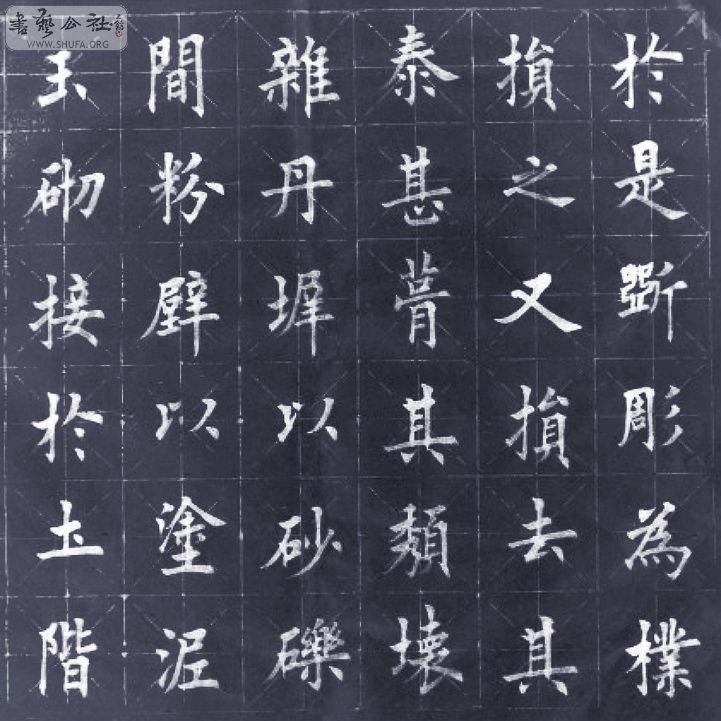 於是斲彫為樸
損之又損去其
泰甚葺其頹壞
雜丹墀以砂礫
間粉壁以塗泥
玉砌接於土階
書藝公社
WWW.SHUFA.ORG